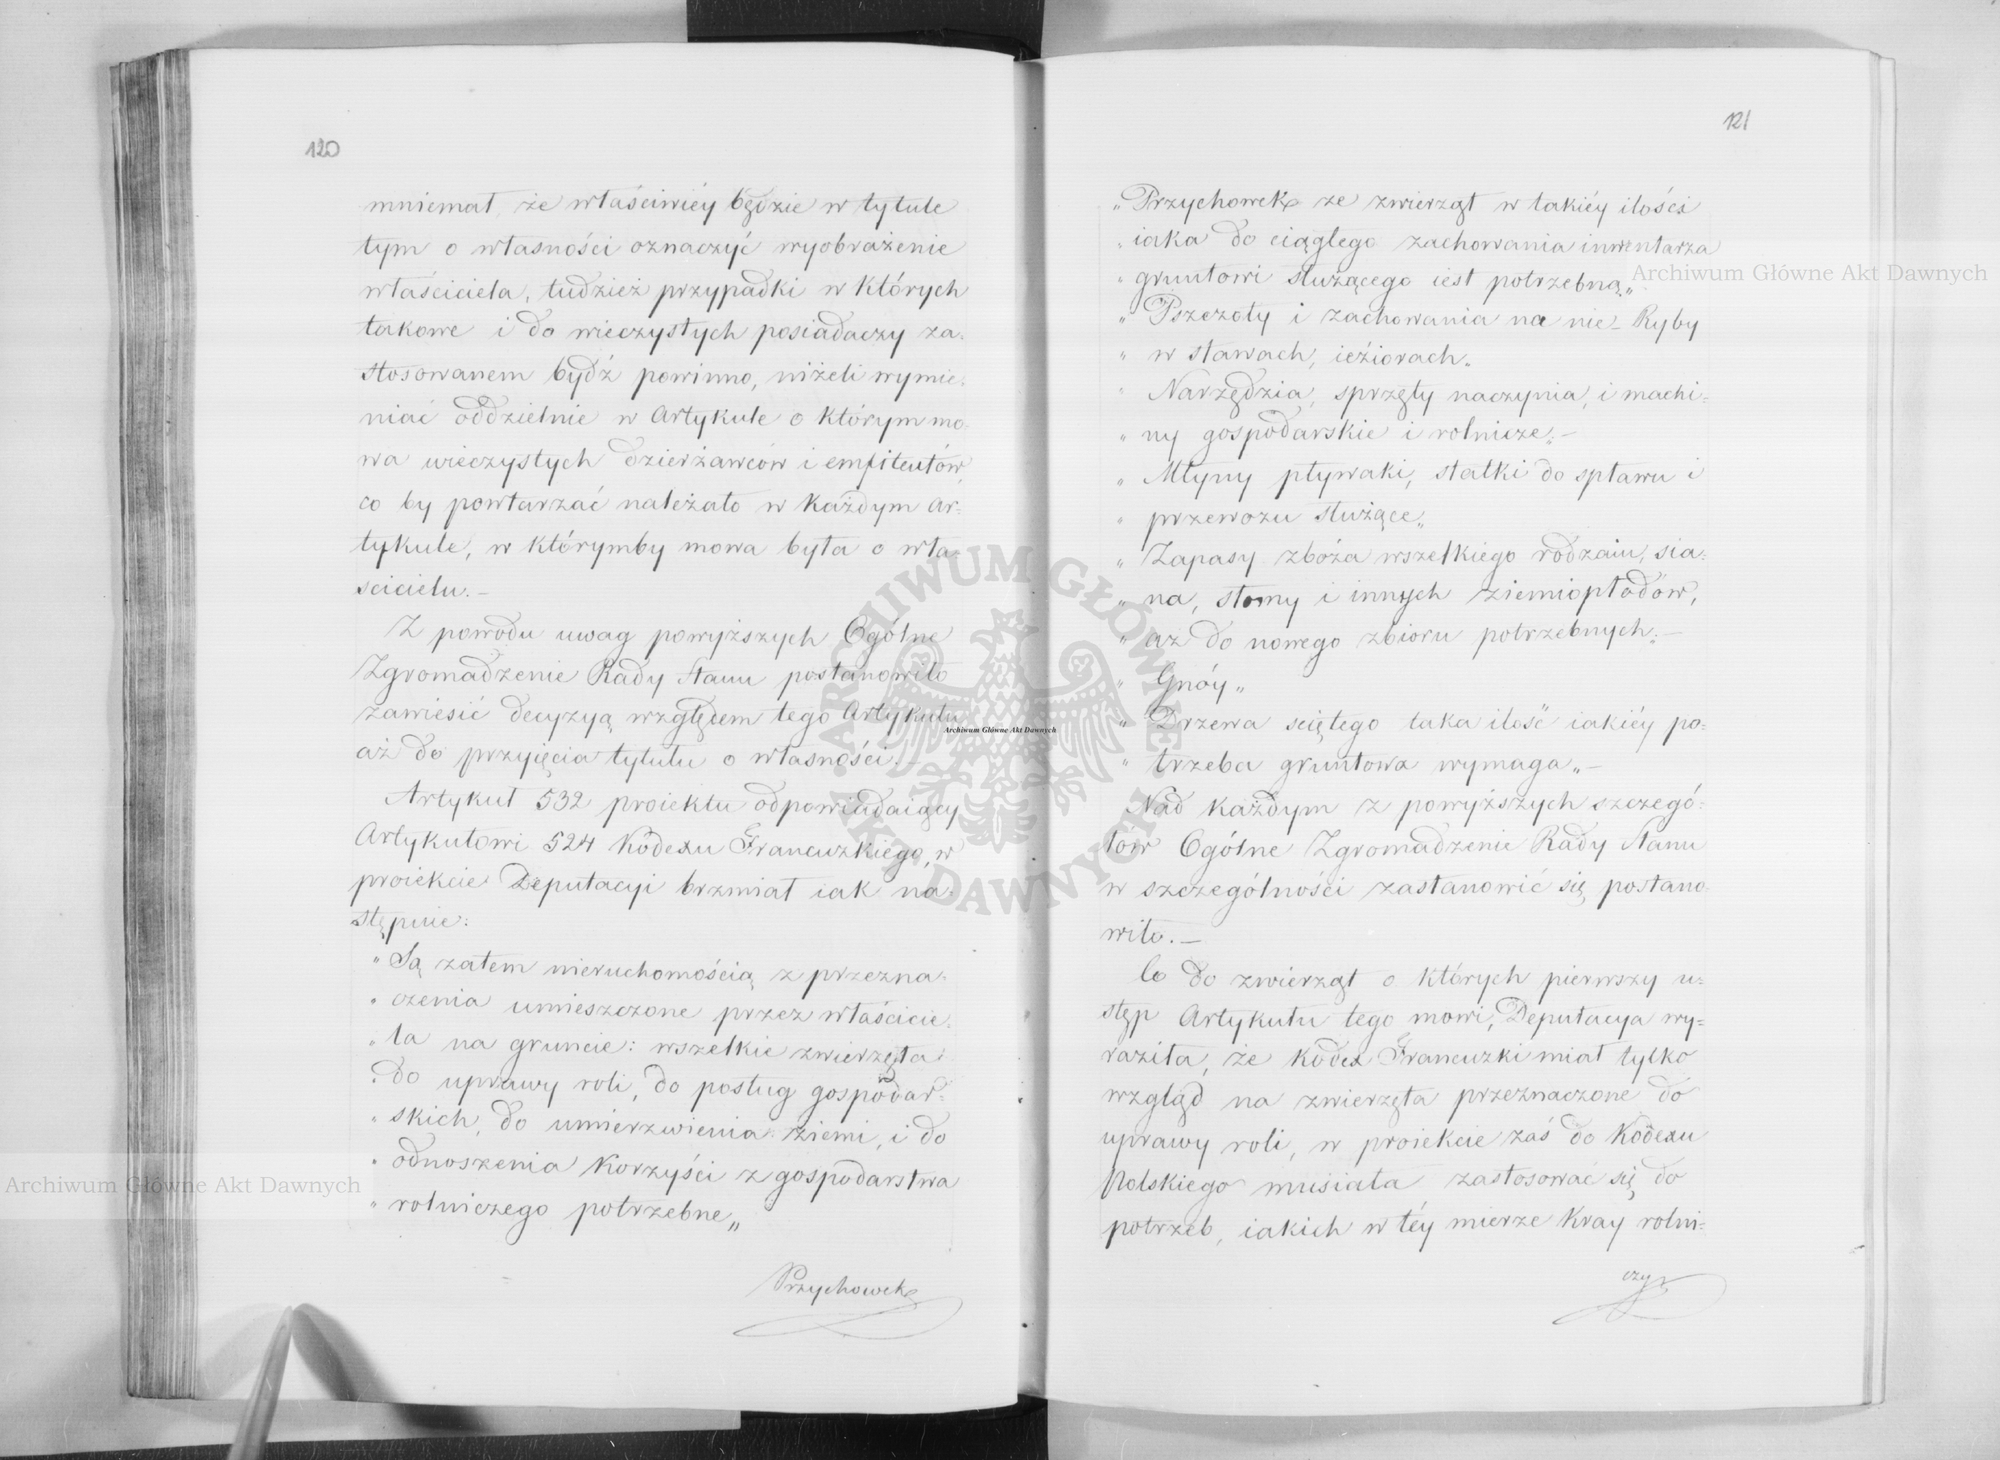 120
mniemał, że właściwiéy będzie w tytule
tym o własności oznaczyć wyobrażenie
właściciela, tudzież przypadki w których
takowe i do wieczystych posiadaczy za-
stosowanem bydź powinno, niżeli wymie-
niać oddzielnie w Artykule o którym mo-
wa wieczystych dzierżawców i emfiteutów,
co by powtarzać należało w każdym Ar-
tykule, w którymby mowa była o wła-
scicielu. —
Z powodu uwag powyższych Ogólne
Zgromadzenie Rady Stanu postanowiło
zawiesić decyzyą względem tego Artykułu
aż do przyięcia tytułu o własności. —
Artykuł 532 proiektu odpowiadaiący
Artykułowi 524 Kodexu Francuzkiego, w
proiekcie Deputacyi brzmiał iak na-
stępuie:
„ Są zatem nieruchomością z przezna-
„ czenia umieszczone przez właścicie-
„ la na gruncie: wszelkie zwierzęta
„ do uprawy roli, do posług gospodar-
„ skich, do umierzwienia ziemi, i do
„ odnoszenia korzyści z gospodarstwa
„ rolniczego potrzebne„
Przychowek
121
„ Przychowek ze zwierząt w takiéy ilości
„ iaka do ciągłego zachowania inwentarza
„ gruntowi służącego iest potrzebną„
„ Pszczoły i zachowania na nie – Ryby
„ w stawach, ieźiorach„
„ Narzędzia, sprzęty naczynia, i machi-
„ ny gospodarskie i rolnicze„ —
„ Młyny pływaki, statki do spławu i
„ przewozu służące„
„ Zapasy zboża wszelkiego rodzaiu, sia-
„ na, słomy i innych ziemiopłodów,
„ aż do nowego zbioru potrzebnych„ —
„ Gnóy„
„ Drzewa sciętego taka ilość iakiéy po-
„ trzeba gruntowa wymaga„ —
Nad każdym z powyższych szczegó-
łow Ogólne Zgromadzenie Rady Stanu
w szczególności zastanowić się postano-
wiło. —
Co do zwierząt o których pierwszy u-
stęp Artykułu tego mowi, Deputacya wy-
raziła, że Kodex Francuzki miał tylko
wzgląd na zwierzęta przeznaczone do
uprawy roli, w proiekcie zaś do Kodexu
Polskiego musiała zastosować się do
potrzeb, iakich w téy mierze Kray rolni-
czy
Archiwum Główne Akt Dawnych
Archiwum Główne Akt Dawnych
Archiwum Główne Akt Dawnych
ARCHIWUM GŁÓWNE AKT DAWNYCH